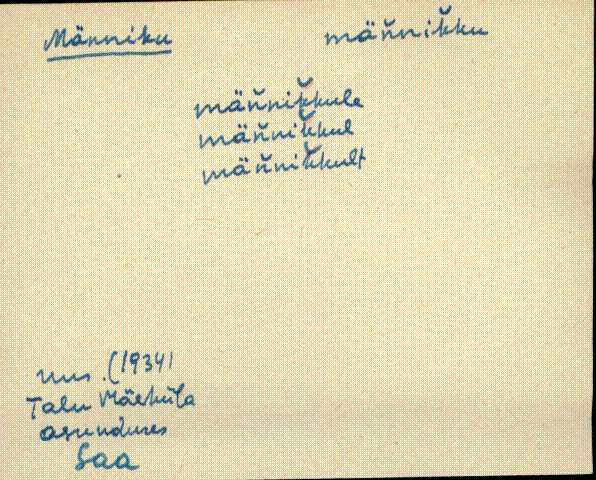 Männiku
män̆nik̆ku
män̆nik̆kule
män̆nik̆kul
män̆nik̆kult
uus. (1934)
Talu Mäeküla
asunduses
Saa